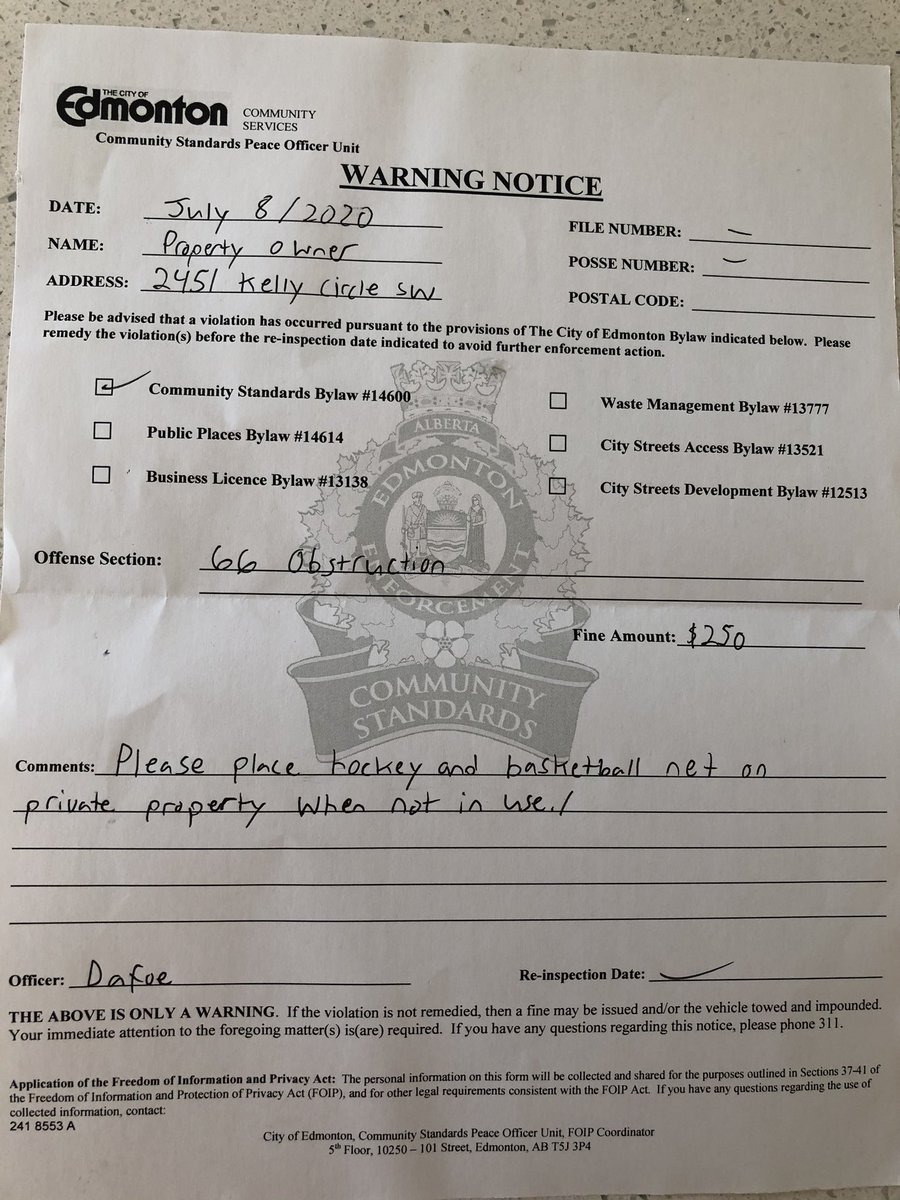 THE CITY OF
Edmonton COMMUNITY SERVICES
Community Standards Peace Officer Unit
WARNING NOTICE
DATE: July 8/2020
FILE NUMBER: –
NAME: Property owner
POSSE NUMBER: –
ADDRESS: 2451 Kelly Circle SW
POSTAL CODE:
Please be advised that a violation has occurred pursuant to the provisions of The City of Edmonton Bylaw indicated below. Please
remedy the violation(s) before the re-inspection date indicated to avoid further enforcement action.
Community Standards Bylaw #14600
Waste Management Bylaw #13777
Public Places Bylaw #14614
City Streets Access Bylaw #13521
Business Licence Bylaw #13138
City Streets Development Bylaw #12513
ALBERTA
EDMONTON
ENFORCEMENT
COMMUNITY
STANDARDS
Offense Section: 66 Obstruction
Fine Amount: $250
Comments: Please place hockey and basketball net on
private property when not in use./
Officer: Dafoe
Re-inspection Date:
THE ABOVE IS ONLY A WARNING. If the violation is not remedied, then a fine may be issued and/or the vehicle towed and impounded.
Your immediate attention to the foregoing matter(s) is(are) required. If you have any questions regarding this notice, please phone 311.
Application of the Freedom of Information and Privacy Act: The personal information on this form will be collected and shared for the purposes outlined in Sections 37-41 of
the Freedom of Information and Protection of Privacy Act (FOIP), and for other legal requirements consistent with the FOIP Act. If you have any questions regarding the use of
collected information, contact:
241 8553 A
City of Edmonton, Community Standards Peace Officer Unit, FOIP Coordinator
5th Floor, 10250 – 101 Street, Edmonton, AB T5J 3P4